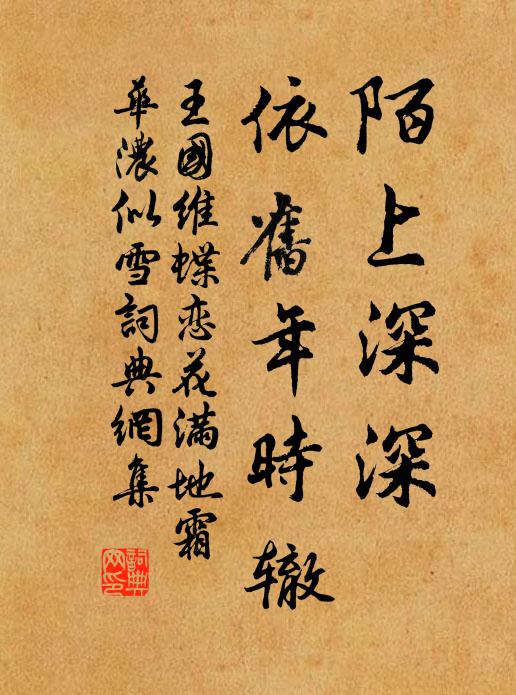 陌上深深
依舊年時轍
王國維蝶恋花满地霜
華濃似雪詞典網集
詞典
网印